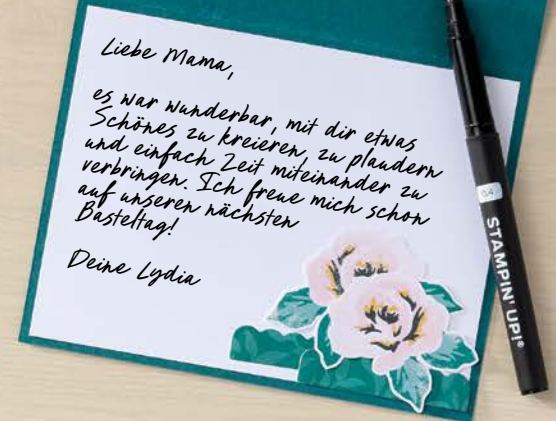 Liebe Mama,
es war wunderbar, mit dir etwas
Schönes zu kreieren, zu plaudern
und einfach Zeit miteinander zu
verbringen. Ich freue mich schon
auf unseren nächsten
Basteltag!
Deine Lydia
0.4
STAMPIN' UP!®